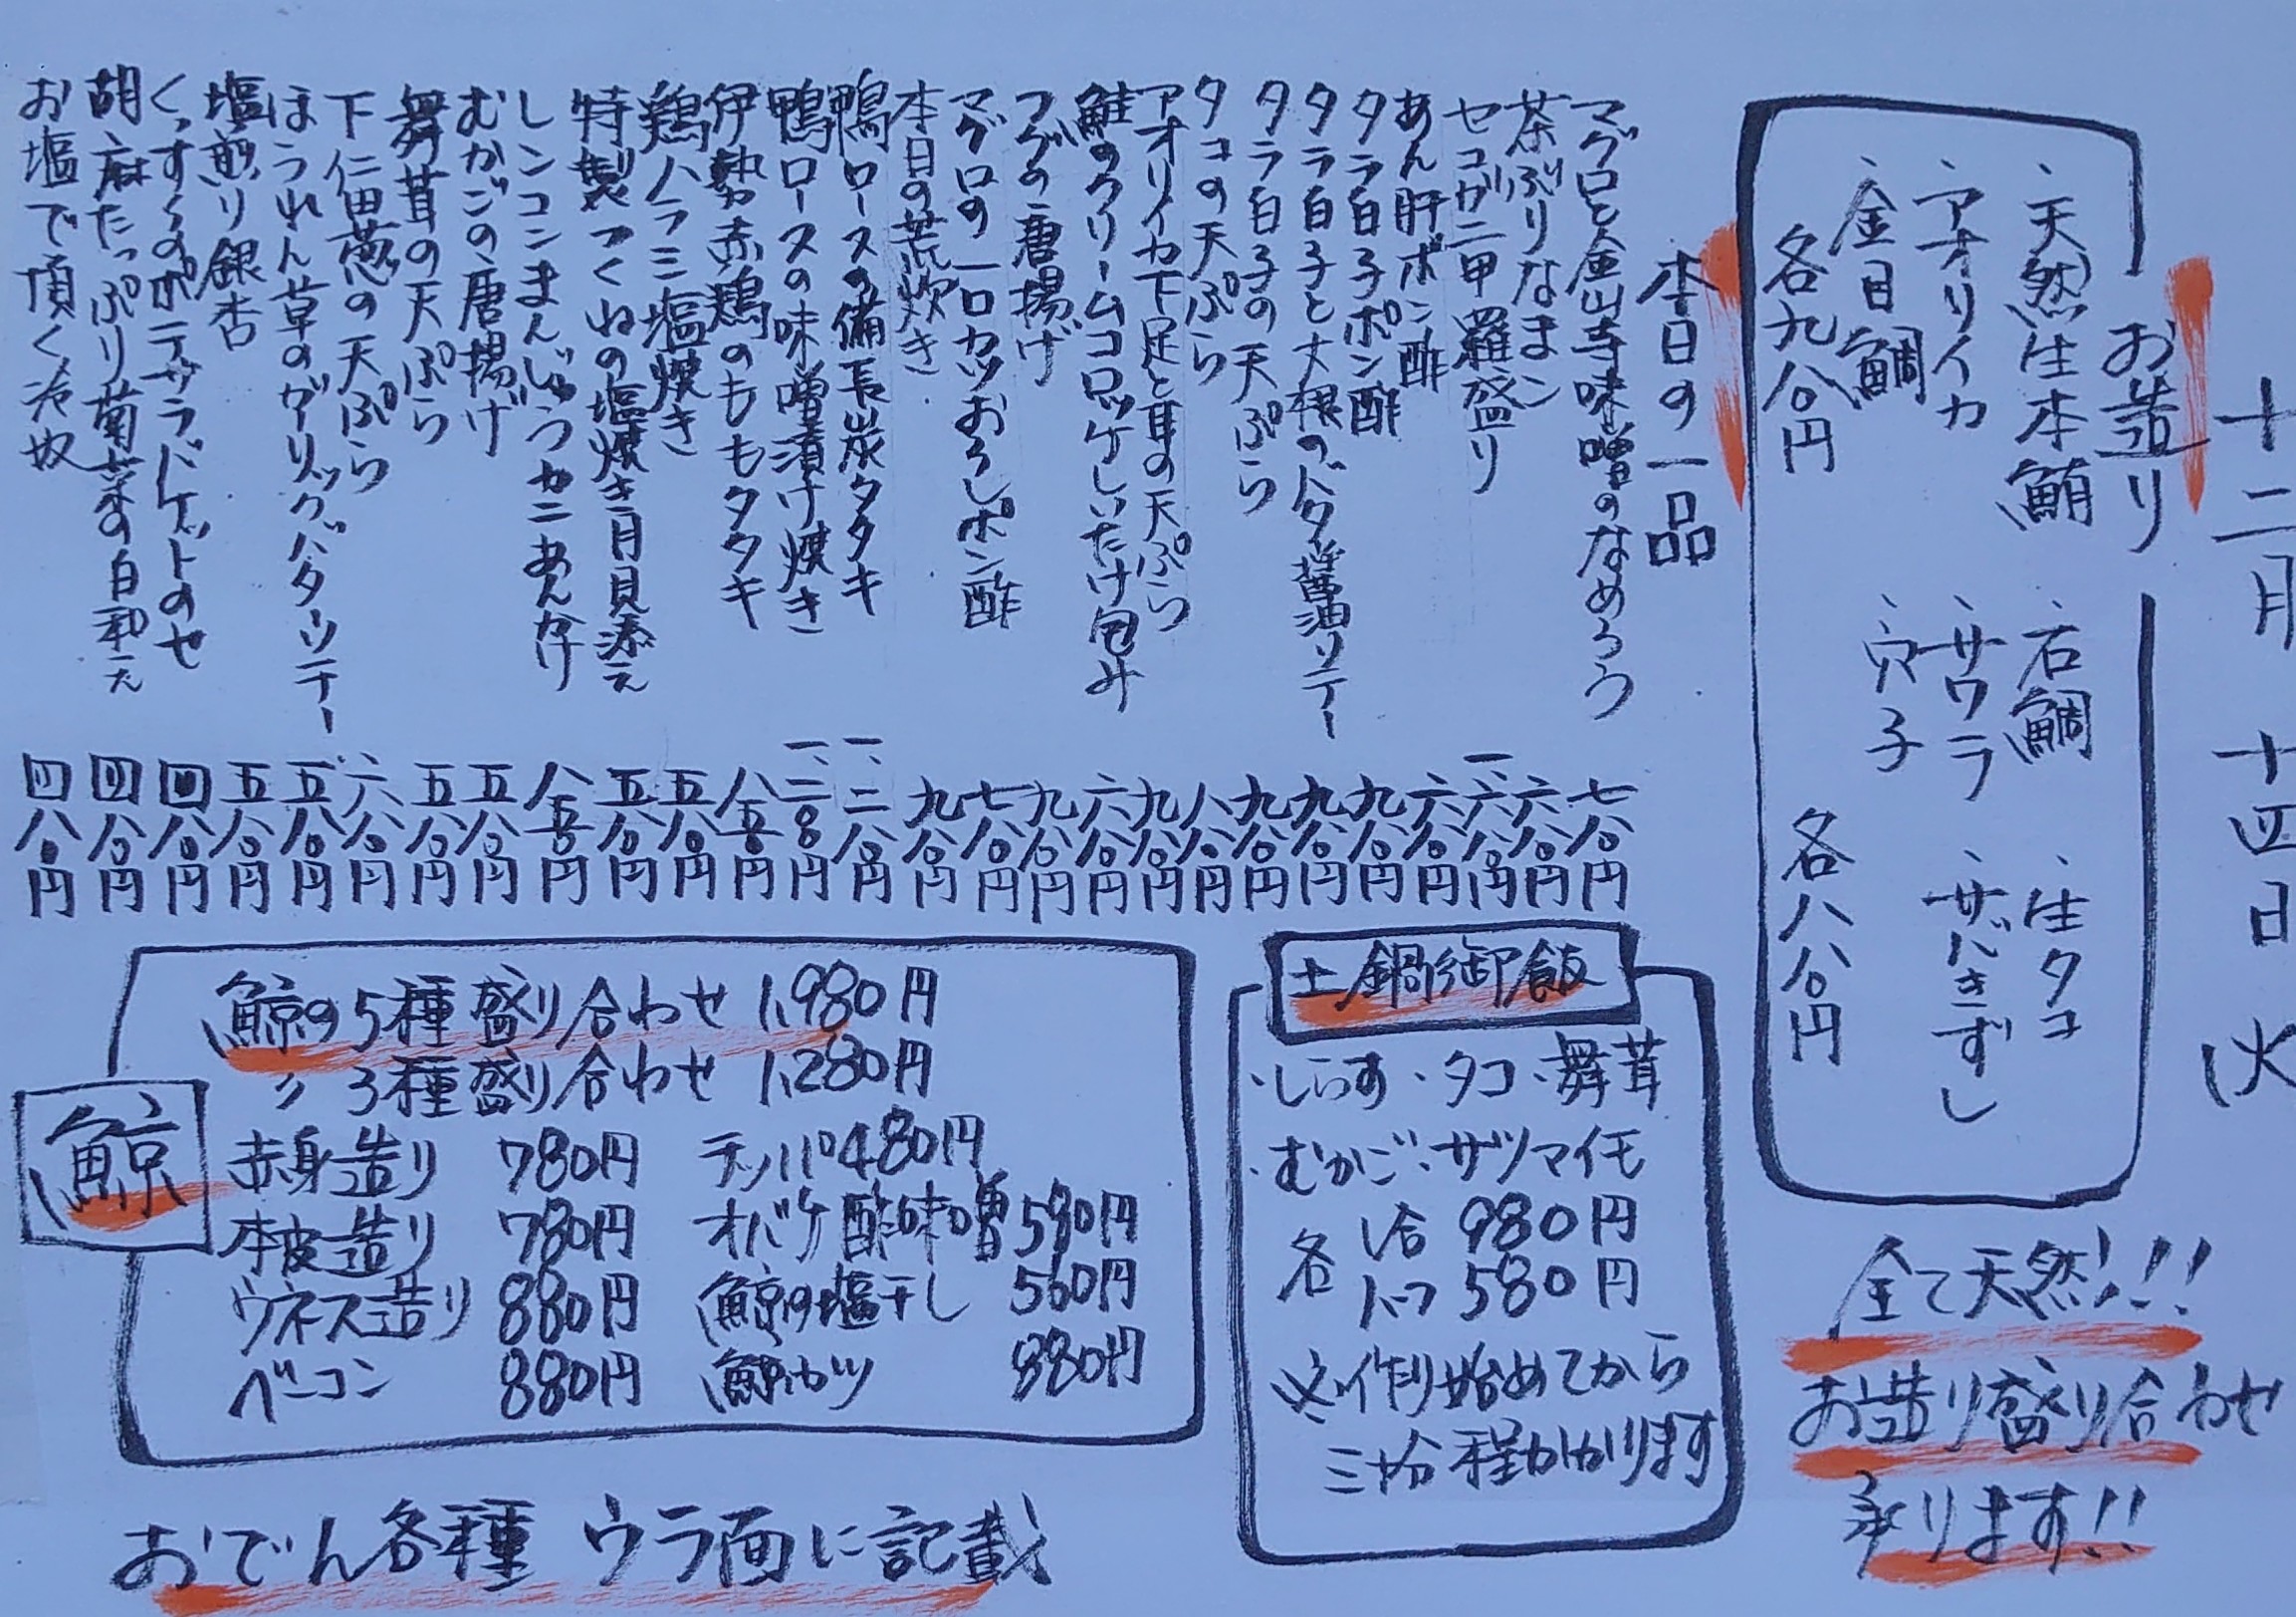 十二月 十四日 火
お造り
、天然生本鮪 、石鯛 、生タコ
、アオリイカ 、サワラ 、サバきずし
、金目鯛 、穴子
各九八〇円 各八八〇円
全て天然!!!
お造り盛り合わせ
承ります!!
本日の一品
マグロと金山寺味噌のなめろう 七八〇円
茶ぶりなまこ 六八〇円
セコガニ甲羅盛り 一、六八〇円
あん肝ポン酢 六八〇円
タラ白子ポン酢 九八〇円
タラ白子と大根のバター醤油ソテー 九八〇円
タラ白子の天ぷら 九八〇円
タコの天ぷら 八八〇円
アオリイカ下足と耳の天ぷら 九八〇円
鮭のクリームコロッケしいたけ包み 六八〇円
フグの唐揚げ 九八〇円
マグロの一口カツおろしポン酢 七八〇円
本日の荒炊き 九八〇円
鴨ロースの備長炭タタキ 一、二八〇円
鴨ロースの味噌漬け焼き 一、二八〇円
伊勢赤鶏のももタタキ 八五〇円
鶏ハラミ塩焼き 五八〇円
特製つくねの塩焼き月見添え 五八〇円
レンコンまんじゅうカニあんかけ 八五〇円
むかごの唐揚げ 五八〇円
舞茸の天ぷら 五八〇円
下仁田葱の天ぷら 六八〇円
ほうれん草のガーリックバターソテー 五八〇円
塩煎り銀杏 五八〇円
くっすくのポテサラバケットのせ 四八〇円
胡麻たっぷり菊菜の白和え 四八〇円
お塩で頂く冷奴 四八〇円
土鍋御飯
・しらす・タコ・舞茸
・むかご・サツマイモ
各 1合 980円
ハーフ 580円
※作り始めてから
三十分程かかります
鯨
鯨の5種盛り合わせ 1,980円
〃 3種盛り合わせ 1,280円
赤身造り 780円 テッパ 480円
本皮造り 780円 オバケ酢味噌 580円
ウネス造り 880円 鯨の塩干し 560円
ベーコン 880円 鯨カツ 880円
おでん各種 ウラ面に記載